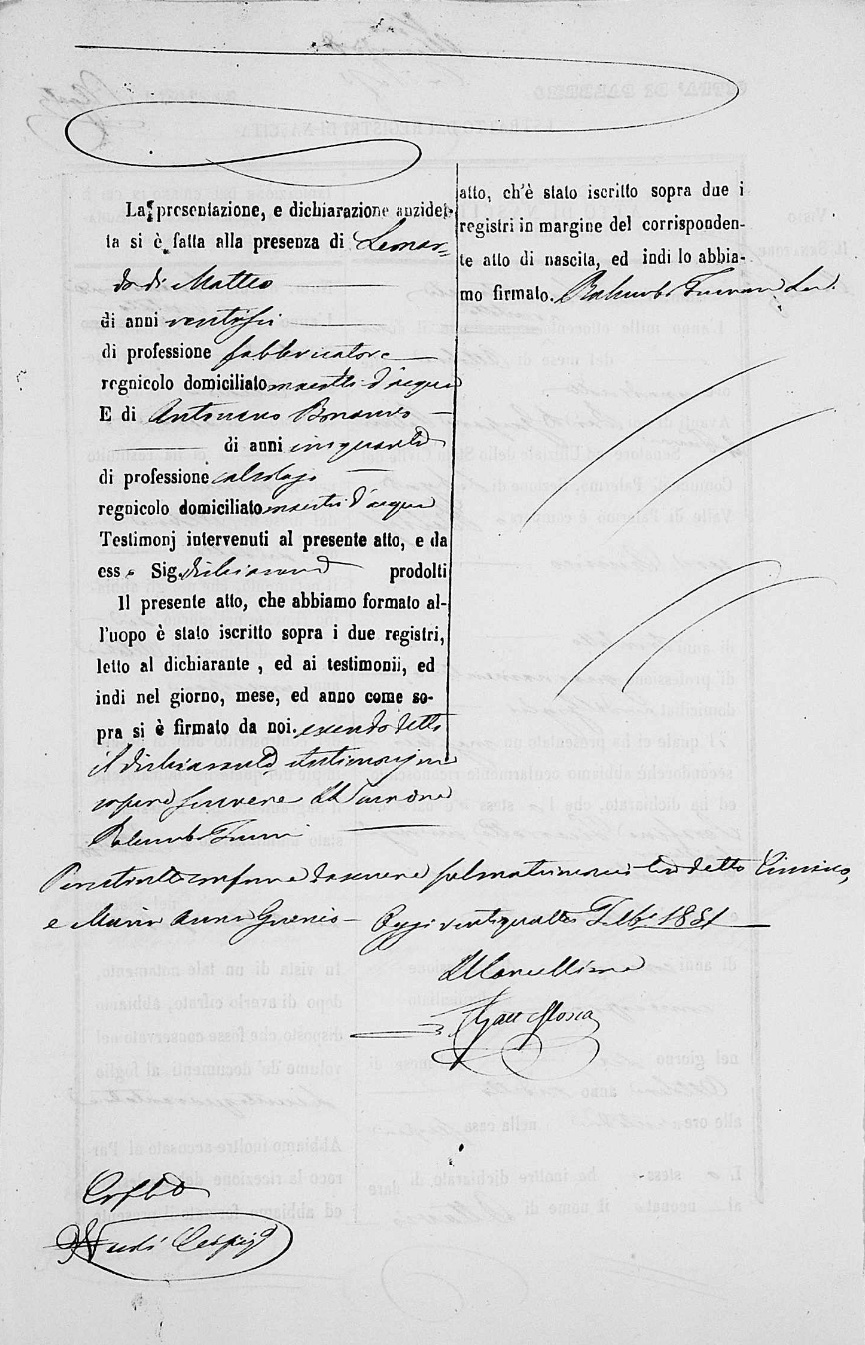 La presentazione, e dichiarazione anzidet-
ta si è fatta alla presenza di Leonar-
do di Matteo
di anni ventisei
di professione fabbricatore
regnicolo domiciliato maestri d'acqua
E di Antonino Bonanno
di anni cinquanta
di professione calzolajo
regnicolo domiciliato maestri d'acqua
Testimonj intervenuti al presente atto, e da
ess Sig. dichiarante prodotti
Il presente atto, che abbiamo formato al-
l'uopo è stato iscritto sopra i due registri,
letto al dichiarante, ed ai testimonii, ed
indi nel giorno, mese, ed anno come so-
pra si è firmato da noi. avendo detto
il dichiarante e testimonj non
sapere scrivere Il
atto, ch'è stato iscritto sopra due i
registri in margine del corrisponden-
te atto di nascita, ed indi lo abbia-
mo firmato.
conforme da servire pel matrimonio tra detto
e Maria Anna Oggi ventiquattro 1881